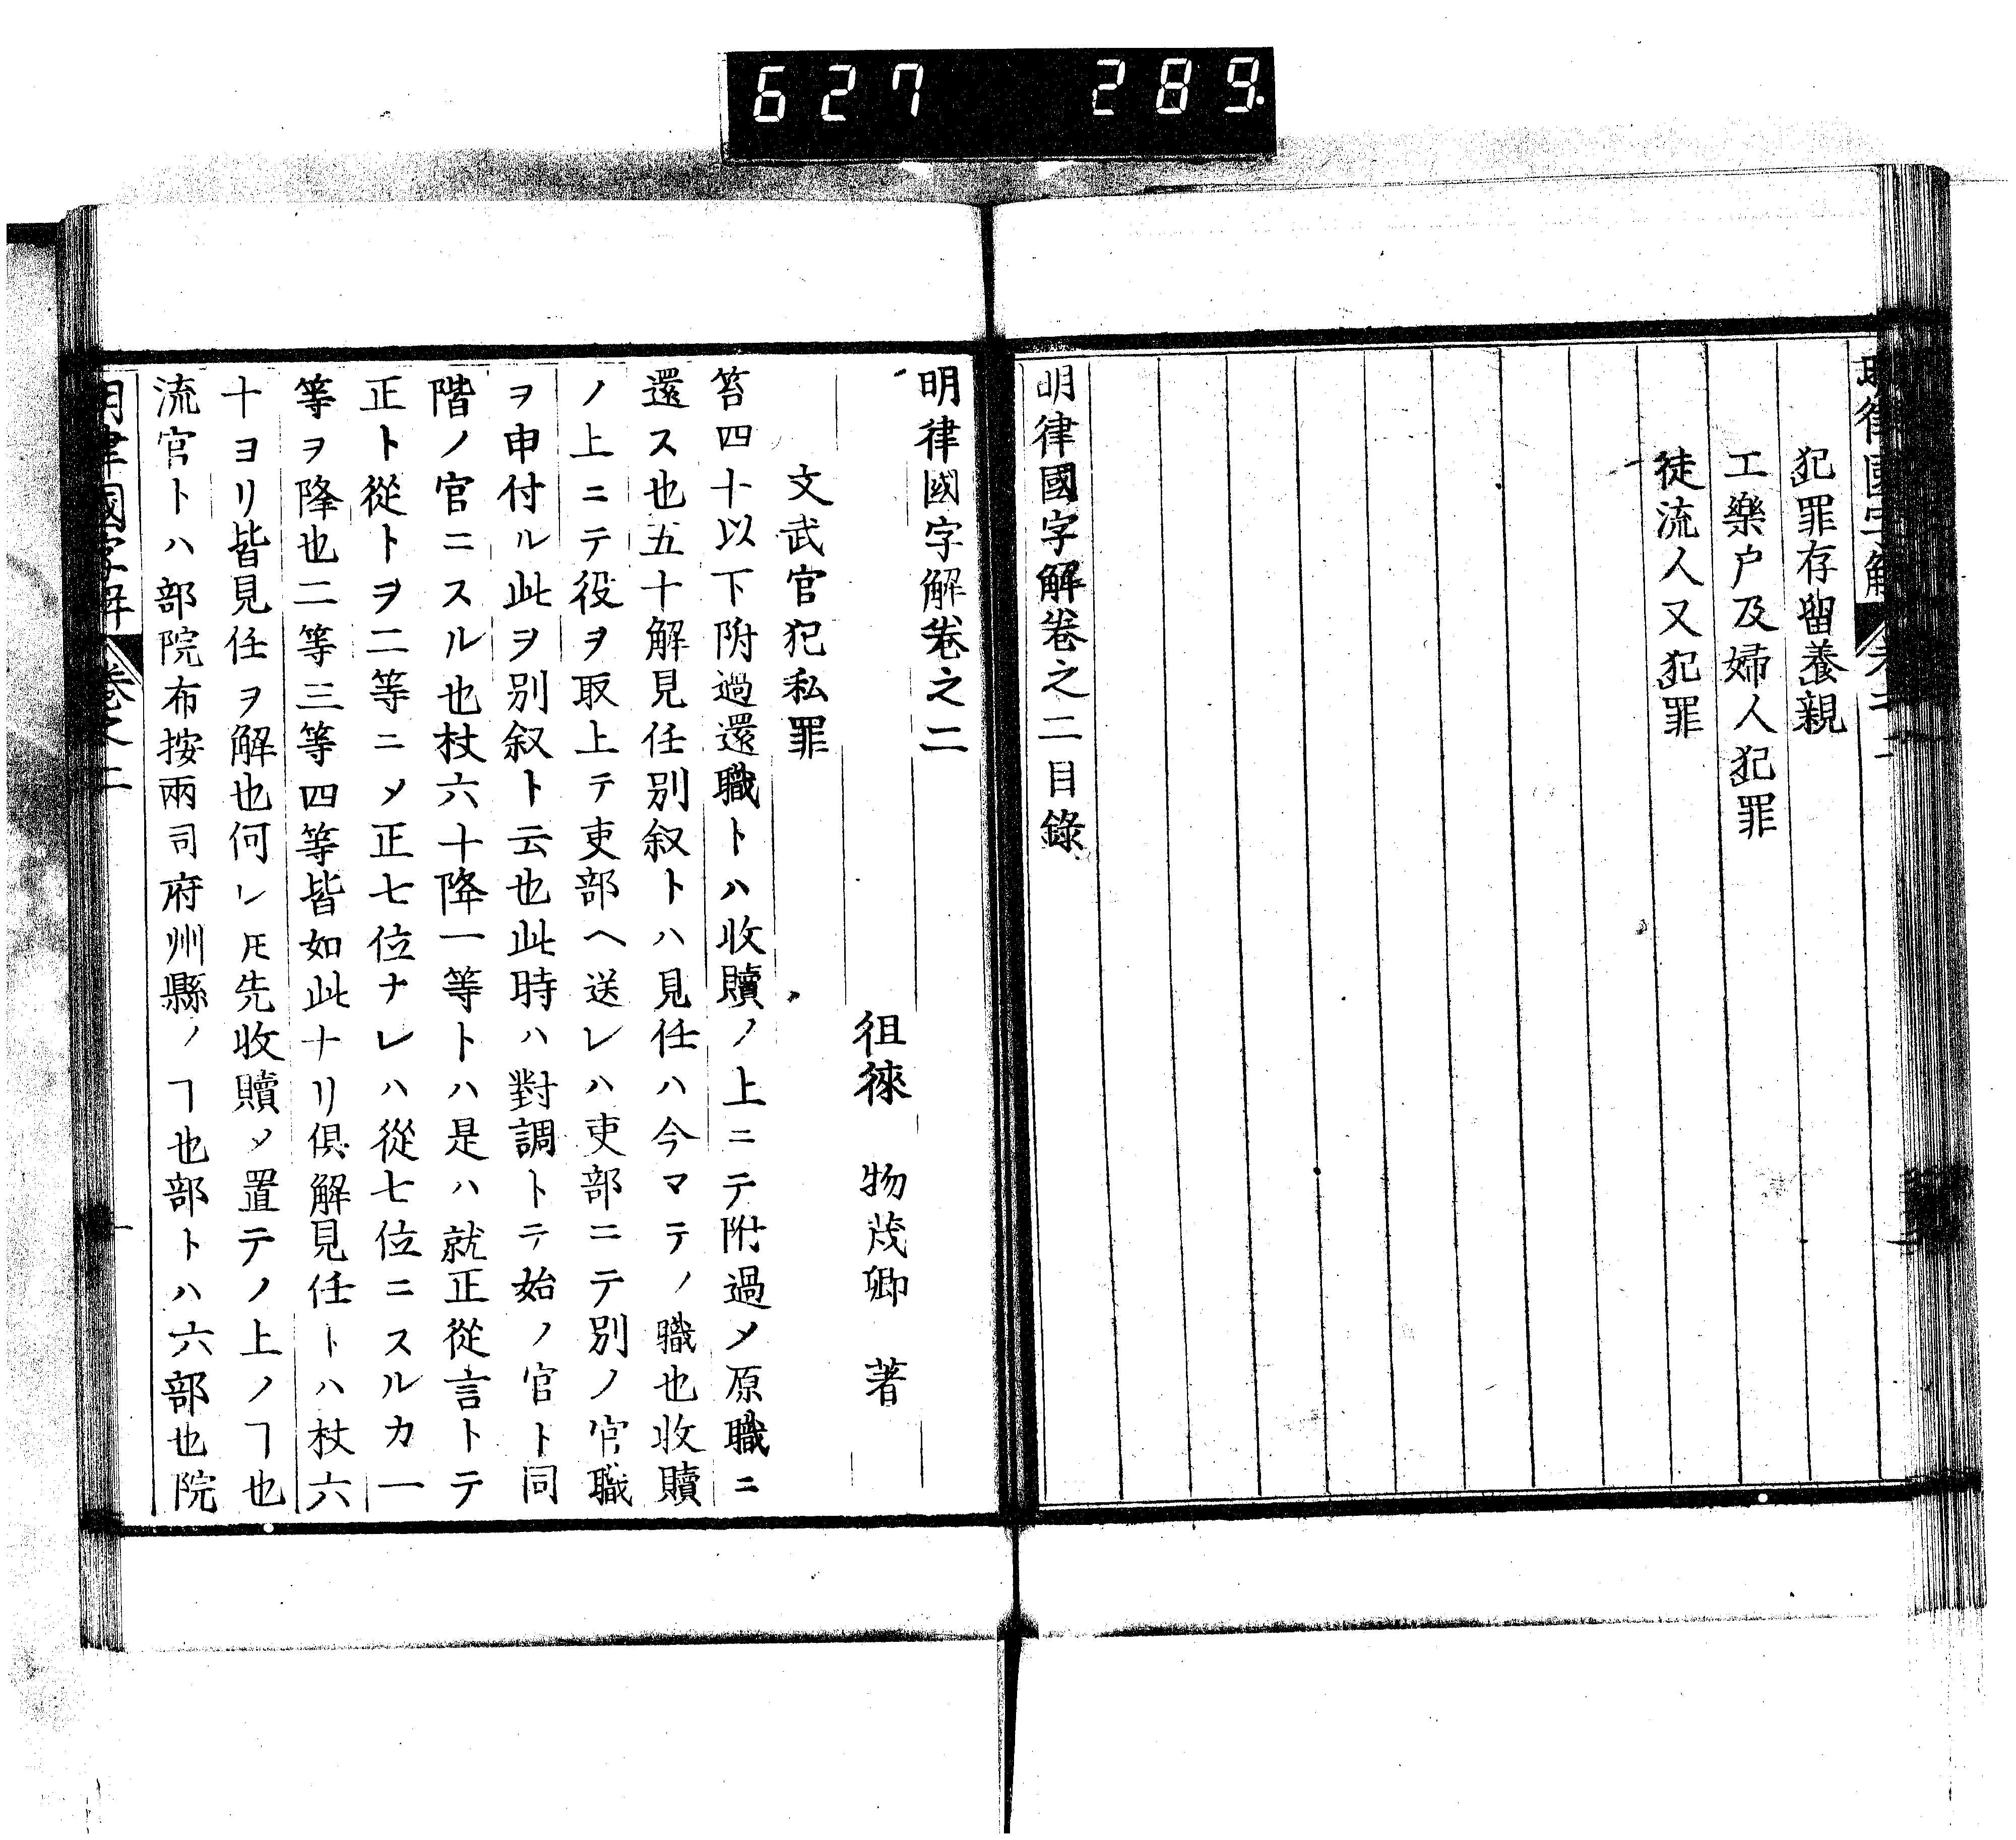 627 289
犯罪存留養親
工樂戶及婦人犯罪
徒流人又犯罪
明律國字解卷之二目錄
明律國字解卷之二
徂徠 物茂卿 著
文武官犯私罪
笞四十以下附過還職トハ收贖ノ上ニテ附過メ原職ニ
還ス也五十解見任別叙トハ見任ハ今マテノ職也收贖
ノ上ニテ役ヲ取上テ吏部ヘ送レハ吏部ニテ別ノ官職
ヲ申付ル此ヲ別叙ト云也此時ハ對調トテ始ノ官ト同
階ノ官ニスル也杖六十降一等トハ是ハ就正從言トテ
正ト從トヲ二等ニメ正七位ナレハ從七位ニスルカ一
等ヲ降也二等三等四等皆如此ナリ俱解見任トハ杖六
十ヨリ皆見任ヲ解也何レ𪜈先收贖メ置テノ上ノヿ也
流官トハ部院布按兩司府州縣ノヿ也部トハ六部也院
明律國字解 卷之二 一